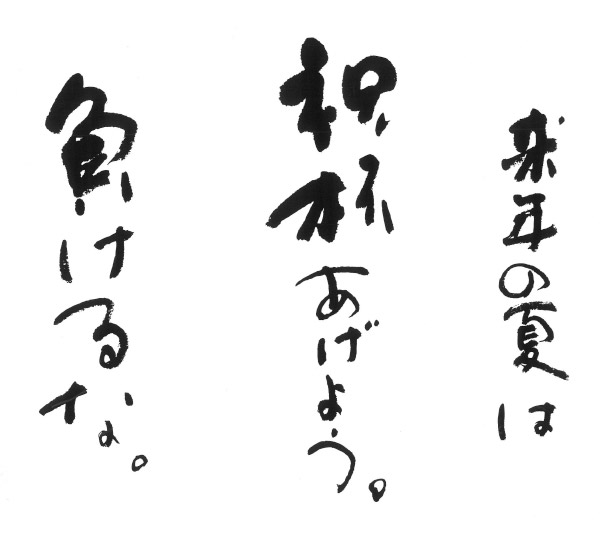 来年の夏は
祝杯あげよう。
負けるな。